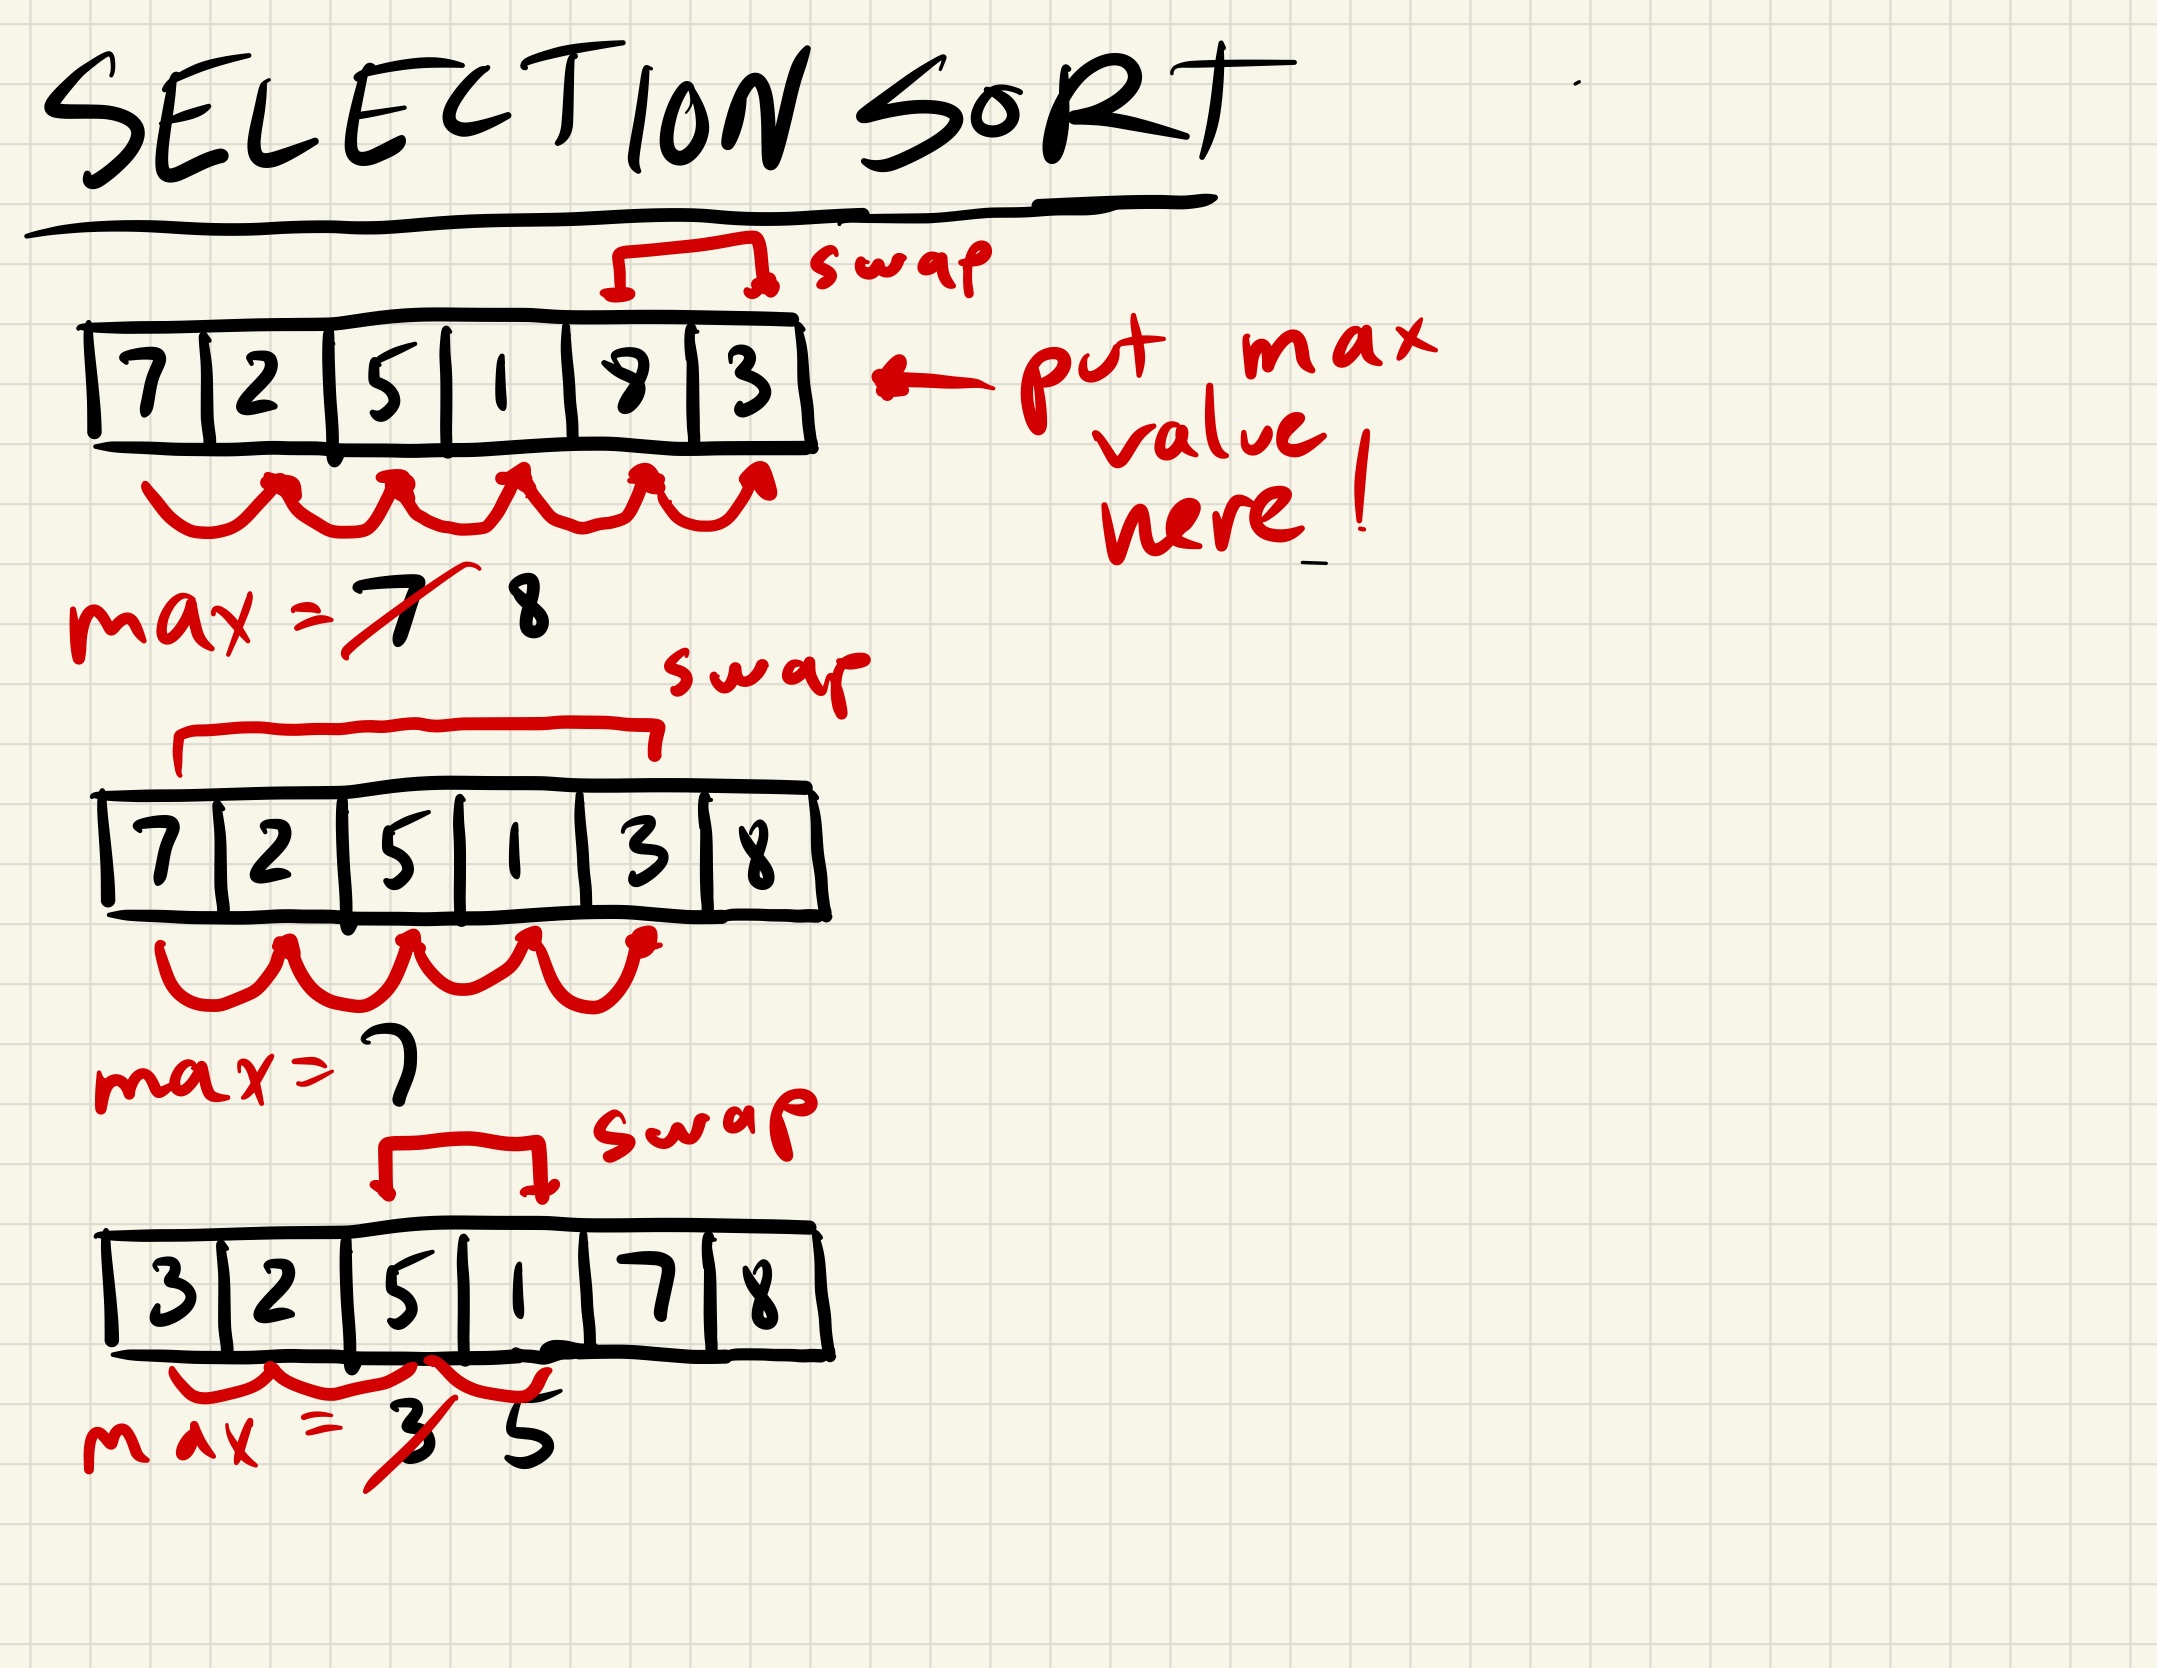 SELECTION SORT
swap
7 2 5 1 8 3
put max
value
here!
max = 7 8
swap
7 2 5 1 3 8
max = 7
swap
3 2 5 1 7 8
max = 3 5